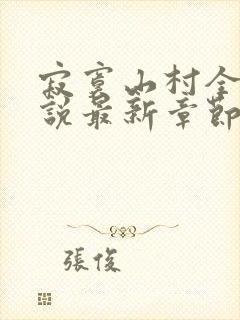 寂寞山村全
說最新章節
張俊